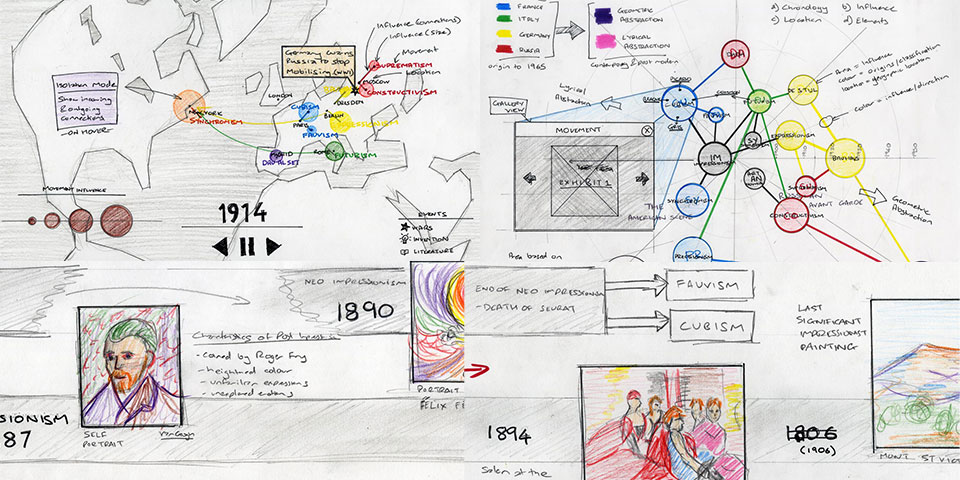 Influence Connections
Influence (size)
Movement
Location
Germany warns
Russia to stop
Mobilising (WW1)
SUPREMATISM
MOSCOW
CONSTRUCTIVISM
Isolation Mode
Show incoming
& outgoing
connections
- ON MOVEMENT
LONDON
DRESDEN
CUBISM
BERLIN
PARIS
EXPRESSIONISM
FAUVISM
NEW YORK
SYNCHROMISM
MADRID
DAU AL SET
ROME
FUTURISM
MOVEMENT INFLUENCE
1914
EVENTS
WARS
INVENTION
LITERATURE
FRANCE
ITALY
GERMANY
RUSSIA
origin to 1965
GEOMETRIC
ABSTRACTION
LYRICAL
ABSTRACTION
Contemporary & post modern
a) Chronology b) Influence
c) Location d) Elements
Area = Influence
colour = origins/classification
location = geographic location
colour = influence/direction
Lyrical
Abstraction
GALLERY
VIEW
MOVEMENT
EXHIBIT 1
DADA
PICASSO
BRAQUE
CUBISM
FUTURISM
DE STIJL
FAUVISM
EXPRESSIONISM
IM
IMPRESSIONISM
BAUHAUS
ART
NOUVEAU
SYNCHROMISM
SUPREMATISM
RUSSIAN
AVANT GARDE
CONSTRUCTIVISM
THE
AMERICAN SCENE
PRECISIONISM
Geometric
Abstraction
Area based on
NEO IMPRESSIONISM
1890
Characteristics of Post Impress
- coined by Roger Fry
- heightened colour
- unfamiliar expressions
- unexplored emotions
SSIONISM
87
SELF
PORTRAIT
Van Gogh
PORTRAIT
FELIX FÉ
END OF NEO IMPRESSIONISM
- DEATH OF SEURAT
FAUVISM
CUBISM
LAST
SIGNIFICANT
IMPRESSIONIST
PAINTING
1894
1806
(1906)
Salon at the
MONT ST VIC